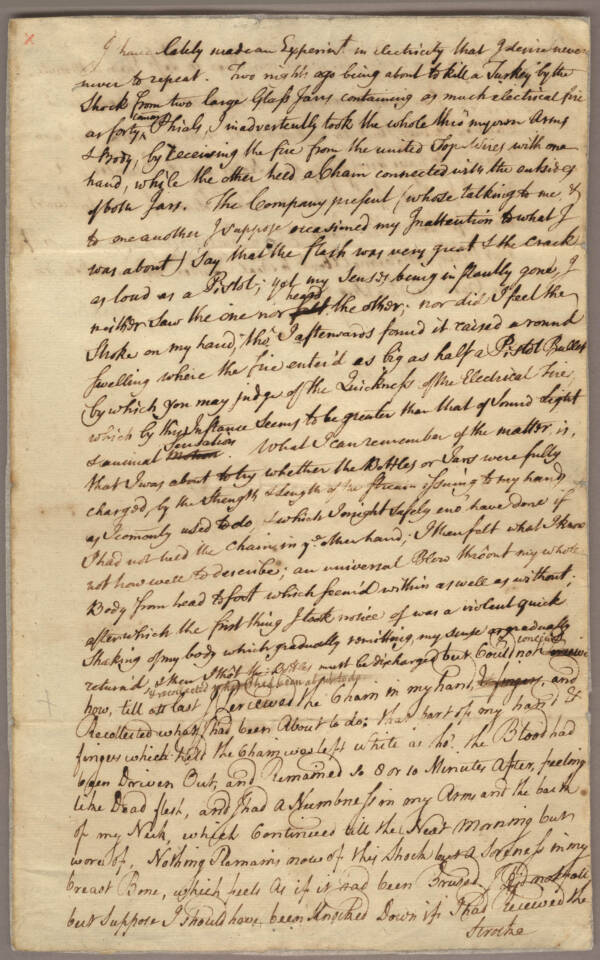 I have lately made an Experimt. in electricity that I desire never
never to repeat. Two nights ago being about to kill a Turkey by the
Shock from two large Glass Jars containing as much electrical fire
as forty common Phials, I inadvertently took the whole thro' my own Arms
& Body, by receiving the fire from the united Top Wires with one
hand, while the other held a Chain connected with the outsides
of both Jars. The Company present (whose talking to me &
to one another I suppose occasioned my Inattention to what I
was about) Say that the flash was very great & the crack
as loud as a Pistol; yet my Senses being instantly gone, I
neither Saw the one nor felt heard the other; nor did I feel the
Stroke on my hand, tho' I afterwards found it raised a round
Swelling where the fire enter'd as big as half a Pistol Bullet
(by which you may judge of the Quickness of the Electrical Fire
which by this Instance Seems to be greater than that of Sound Light
& animal Motion Sensation. What I can remember of the matter is,
that I was about to try whether the Bottles or Jars were fully
charged, by the Strength & Length of the Stream issuing to my hand
as I commonly used to do, & which I might safely eno' have done if
I had not held the Chain in ye. other hand; I then felt what I know
not how well to describe; an universal Blow thro'out my whole
Body from head to foot which seem'd within as well as without;
after which the first thing I took notice of was a violent quick
Shaking of my body which gradually remitting, my sense as gradually
return'd, & then I tho't the Bottles must be discharged but Could not conceive
how, till att last I Perceived the Chain in my hand, and
Recollected what I had been About to do: that part of my hand &
fingers which held the Chain was left white as tho' the Blood had
been Driven Out, and Remained so 8 or 10 Minutes After, feeling
like Dead flesh, and I had a Numbness in my Arms and the back
of my Neck, which Continued till the Next Morning but
wore of, Nothing Remains now of this Shock but a Soreness in my
breast Bone, which feels As if it had been Brused. I Did not fall
but Suppose I Should have been Knocked Down if I had Received the
Stroke